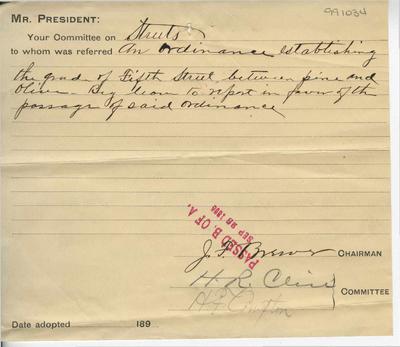 991034
MR. PRESIDENT:
Your Committee on Streets
to whom was referred An ordinance establishing
the grade of Fifth Street between pine and
Olive - Beg leave to report in favor of the
passage of said ordinance
PASSED B. OF A.
SEP 26
J. F. Brewer CHAIRMAN
H.
COMMITTEE
Date adopted 189